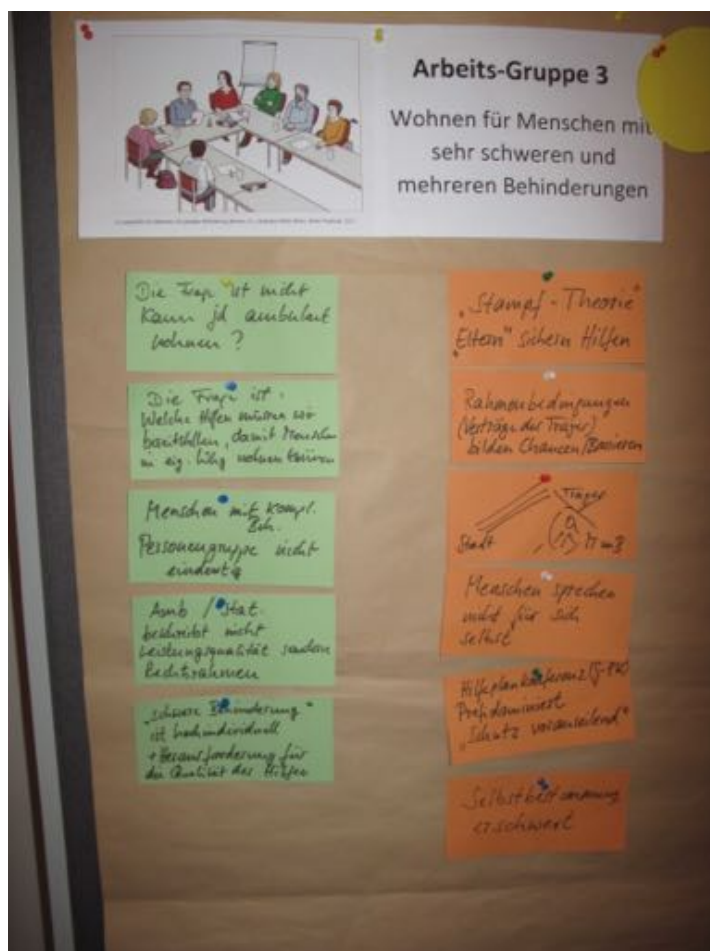 Arbeits-Gruppe 3
Wohnen für Menschen mit
sehr schweren und
mehreren Behinderungen
Die Frage ist nicht
Kann jd ambulant
wohnen ?
Die Frage ist:
Welche Hilfen müssen wir
bereitstellen, damit Menschen
in eig. Whg wohnen können
Menschen mit kompl.
Beh.
Personengruppe nicht
eindeutig
Amb / Stat.
beschreibt nicht
Leistungsqualität sondern
Rechtsrahmen
„schwere Behinderung"
ist hochindividuell
+ Herausforderung für
die Qualität der Hilfen
„Stampf - Theorie"
„Eltern" sichern Hilfen
Rahmenbedingungen
(Verträge der Träger)
bilden Chancen/Barrieren
Träger
Stadt
M m B
Menschen sprechen
nicht für sich
selbst
Hilfeplankonferenz
Profidominiert
„Schutz voraneilend"
Selbstbestimmung
erschwert